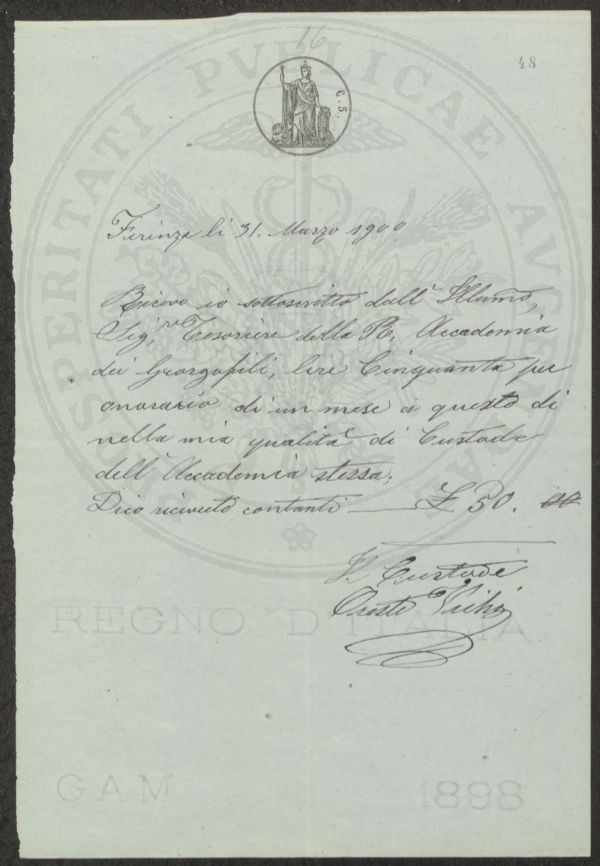 16
48
C. 5.
PROSPERITATI PVBLICAE AVGENDAE
Firenze li 31. Marzo 1900
Ricevo io sottoscritto dall' Illumo,
Sig.r Tesoriere della R. Accademia
dei Georgofili, lire Cinquanta per
onorario di un mese a questo dì
nella mia qualità di Custode
dell' Accademia stessa.
Dico ricevuto contanti — £ 50. 00
Il Custode
Oreste
REGNO D'ITALIA
G.A.M 1898